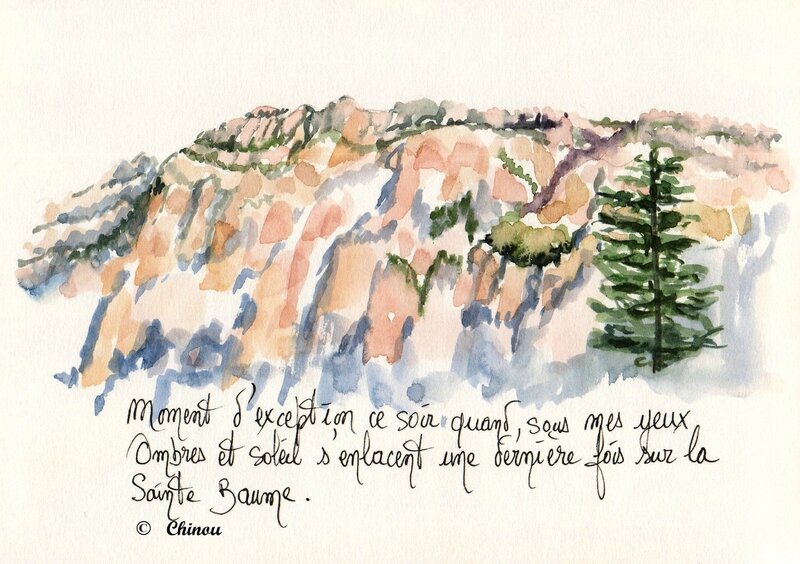 Moment d'exception ce soir quand, sous mes yeux
Ombres et soleil s'enlacent une dernière fois sur la
Sainte Baume.
© Chinou